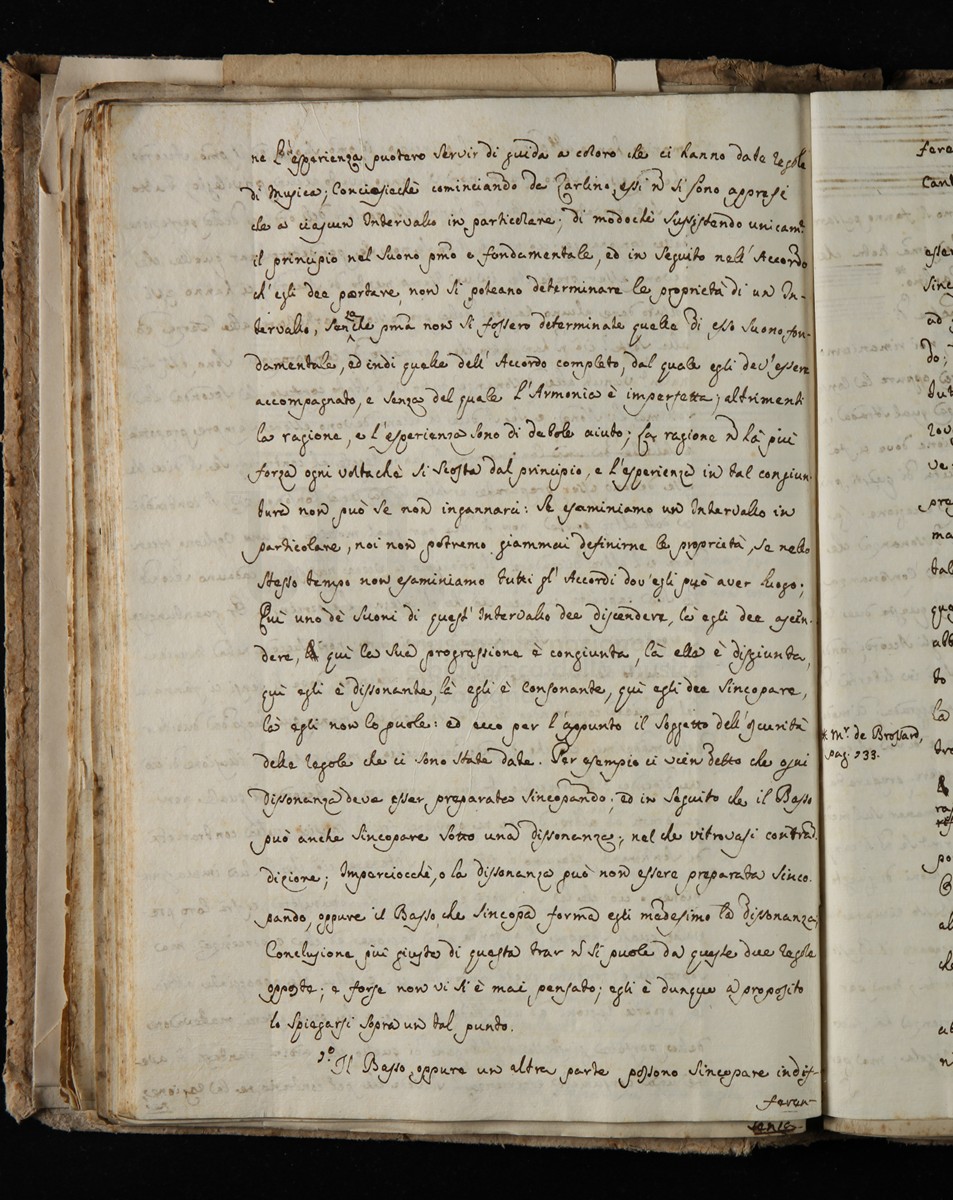 ne l'esperienza potero servir di guida a coloro che ci hanno date regole
di Musica; Conciosiachè cominciando da Zarlino, essi ñ si sono appresi
che a ciascun Intervallo in particolare; di modochè sussistendo unicamte
il principio nel Suono pmo e fondamentale, ed in seguito nell'Accordo
ch'egli dee portare, non si poteano determinare le proprietà di un In-
tervallo, senzache pma non si fossero determinate quelle di esso Suono fon-
damentale, ed indi quelle dell'Accordo completo, dal quale egli dev'essere
accompagnato, e senza del quale l'Armonia è imperfetta; altrimenti
la ragione, e l'esperienza sono di debole aiuto; La ragione ñ hà più
forza ogni voltachè si scosta dal principio, e l'esperienza in tal congiun-
tura non può se non ingannarci: se esaminiamo un Intervallo in
particolare, noi non potremo giammai definirne le proprietà, se nello
stesso tempo non esaminiamo tutti gl'Accordi dov'egli può aver luogo;
Quì uno dè Suoni di quest'Intervallo dee discendere, là egli dee ascen-
dere, quì la sua progressione è congiunta, là ella è disgiunta,
quì egli è dissonante, là egli è consonante, quì egli dee sincopare,
là egli non lo puole: ed ecco per l'appunto il soggetto dell'oscurità
delle regole che ci sono state date. Per esempio ci vien detto che ogni
dissonanza deve esser preparata sincopando; ed in seguito che il Basso
può anche sincopare sotto una dissonanza; nel che ritrovasi contrad-
dizione; Imperciocchè, o la dissonanza può non essere preparata sinco-
pando, oppure il Basso che sincopa forma egli medesimo la dissonanza;
Conclusione più giusta di questa trar ñ si puole da queste due regole
opposte; e forse non vi si è mai pensato; egli è dunque a proposito
lo spiegarsi sopra un tal punto.
1o. Il Basso, oppure un altra parte possono sincopare indif-
feren-
* Mr. de Brossard,
pag. 133.